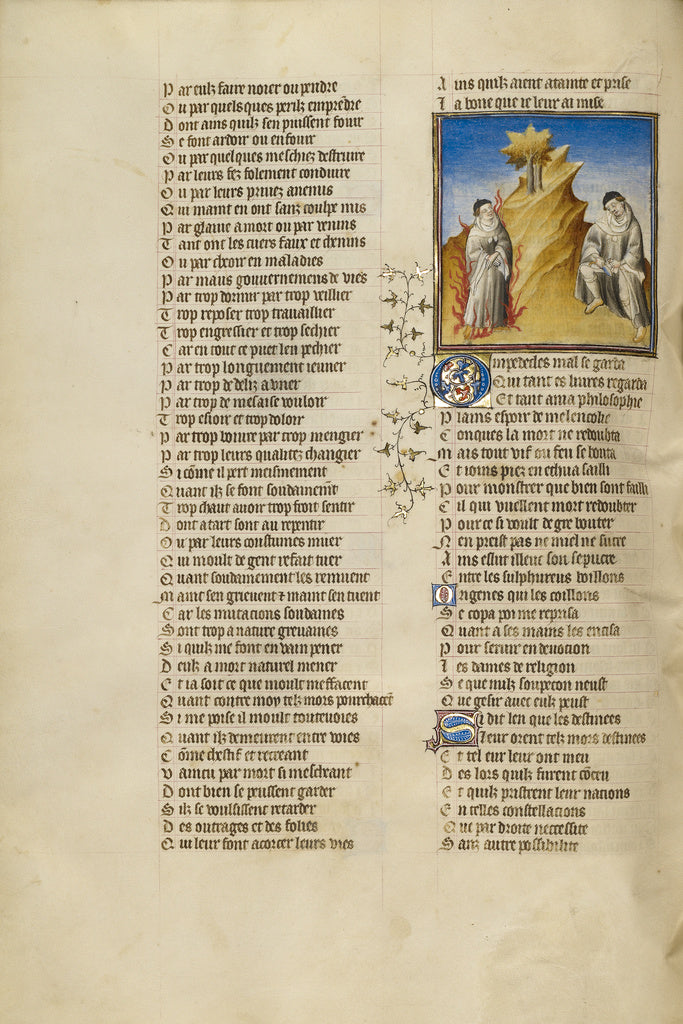 Par eulz faire noier ou pendre
Ou par quelsques perilz emprēdre
Dont ains quilz sen puissent fouir
Se font ardoir ou enfouir
Ou par quelques meschiez destruire
Par leurs fez folement conduire
Ou par leurs privez anemis
Qui maint en ont sanz coulpe mis
Par glaive a mort ou par venins
Tant ont les cuers faux et chenins
Ou par cheoir en maladies
Par maus gouvernemens de vies
Par trop dormir par trop veillier
Trop reposer trop travaillier
Trop engressier et trop sechier
Car en tout ce puet len pechier
Par trop longuement ieuner
Par trop de deliz auner
Par trop de mesaise vouloir
Trop esioir et trop doloir
Par trop boivre par trop mengier
Par trop leurs qualitez changier
Si cōme il pert meismement
Quant ilz se font soudainemēt
Trop chaut avoir trop froit sentir
Dont a tart sont au repentir
Ou par leurs coustumes muer
Qui moult de gent refait tuer
Quant soudainement les remuent
Maint sen grievent & maint sen tuent
Car les mutacions soudaines
Sont trop a nature grevaines
Si quilz me font en vain pener
Deulz a mort naturel mener
Et ia soit ce que moult meffacent
Quant contre moy telz mors pourchacēt
Si me poise il moult toutevoies
Quant ilz demeurent entre voies
Cōme chestif et recreant
Vaincu par mort si mescheant
Dont bien se peussent garder
Silz se voulsissent retarder
Des outrages et des folies
Qui leur font acorcer leurs vies
Ains quilz aient atainte et prise
La bone que ie leur ai mise
Empedecles mal se garda
Qui tant es livres regarda
Et tant ama philosophie
Plains espoir de melencolie
Conques la mort ne redoubta
Mais tout vif ou feu se bouta
Et ioins piez en ethna sailli
Pour monstrer que bien sont failli
Cil qui vuellent mort redoubter
Pour ce si voult de gre bouter
Nen preist pas ne miel ne sucre
Ains eslut illeuc son sepucre
Entre les sulphureus boillons
Origenes qui les coillons
Se copa poi me reprisa
Quant a ses mains les encisa
Pour servir en devocion
Les dames de religion
Se que nulz soupecon neust
Que gesir avec eulz peust
Si dit len que les destinees
Leur orent telz mors destinees
Et tel eur leur ont meu
Des lors quilz furent cōceu
Et quilz pristrent leur nacions
En telles constellacions
Que par droite necessite
Sanz autre possibilite